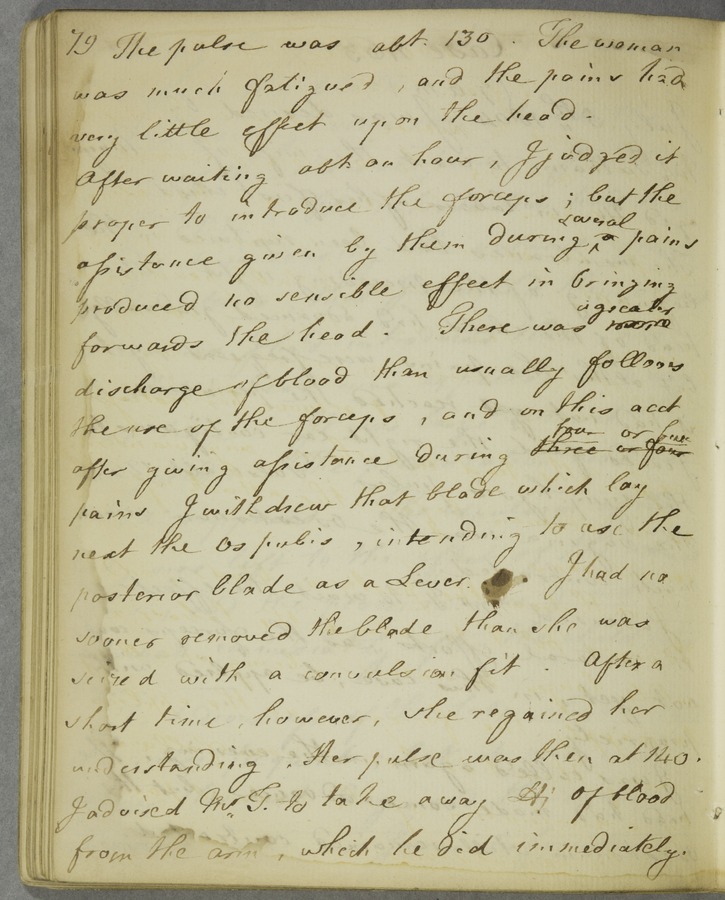 79 The pulse was abt. 130. The woman
was much fatigued, and the pains had
very little effect upon the head.
After waiting abt an hour, I judged it
proper to introduce the forceps; but the
several
assistance given by them during ^ a pains
produced no sensible effect in bringing
a greater
forwards the head. There was more
discharge of blood than usually follows
the use of the forceps, and on this acct
four or five
after giving assistance during three or four
pains I withdrew that blade which lay
next the Os pubis, intending to use the
posterior blade as a Lever. I had no
sooner removed the blade than she was
seized with a convulsion fit. After a
short time, however, she regained her
understanding. Her pulse was then at 140.
I advised Mr. G. to take away of blood
from the arm, which he did immediately.